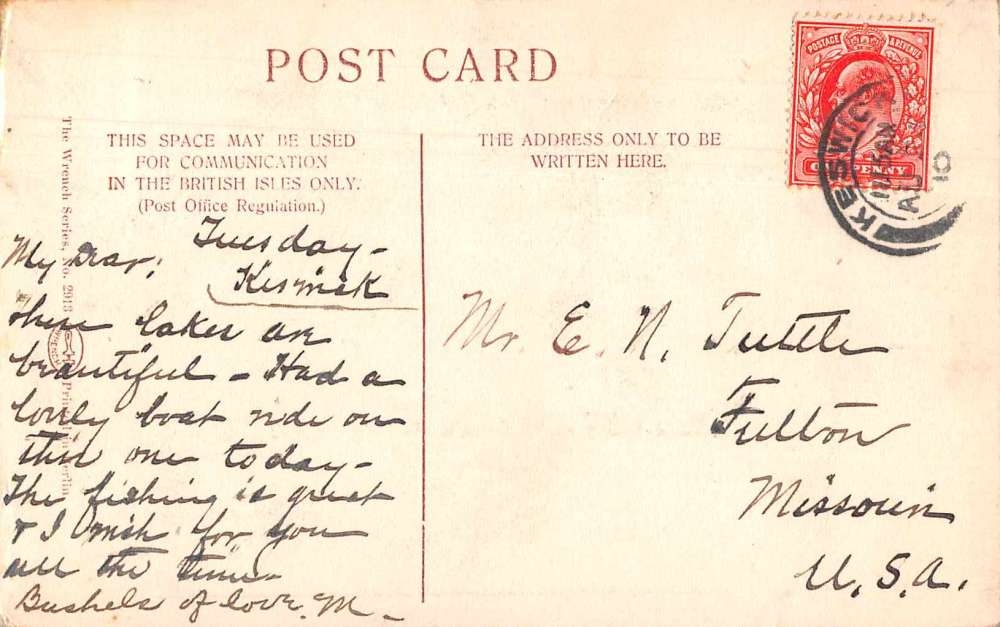 POST CARD
THIS SPACE MAY BE USED
FOR COMMUNICATION
IN THE BRITISH ISLES ONLY.
(Post Office Regulation.)
THE ADDRESS ONLY TO BE
WRITTEN HERE.
The Wrench Series, No. 2913
POSTAGE & REVENUE
ONE PENNY
KESWICK
10
Tuesday -
Keswick
My Dear;
These lakes are
beautiful - Had a
lovely boat ride on
this one today -
The fishing is great
& I wish for you
all the time -
Bushels of love. M -
Mr. E. N. Tuttle
Fulton
Missouri
U.S.A.